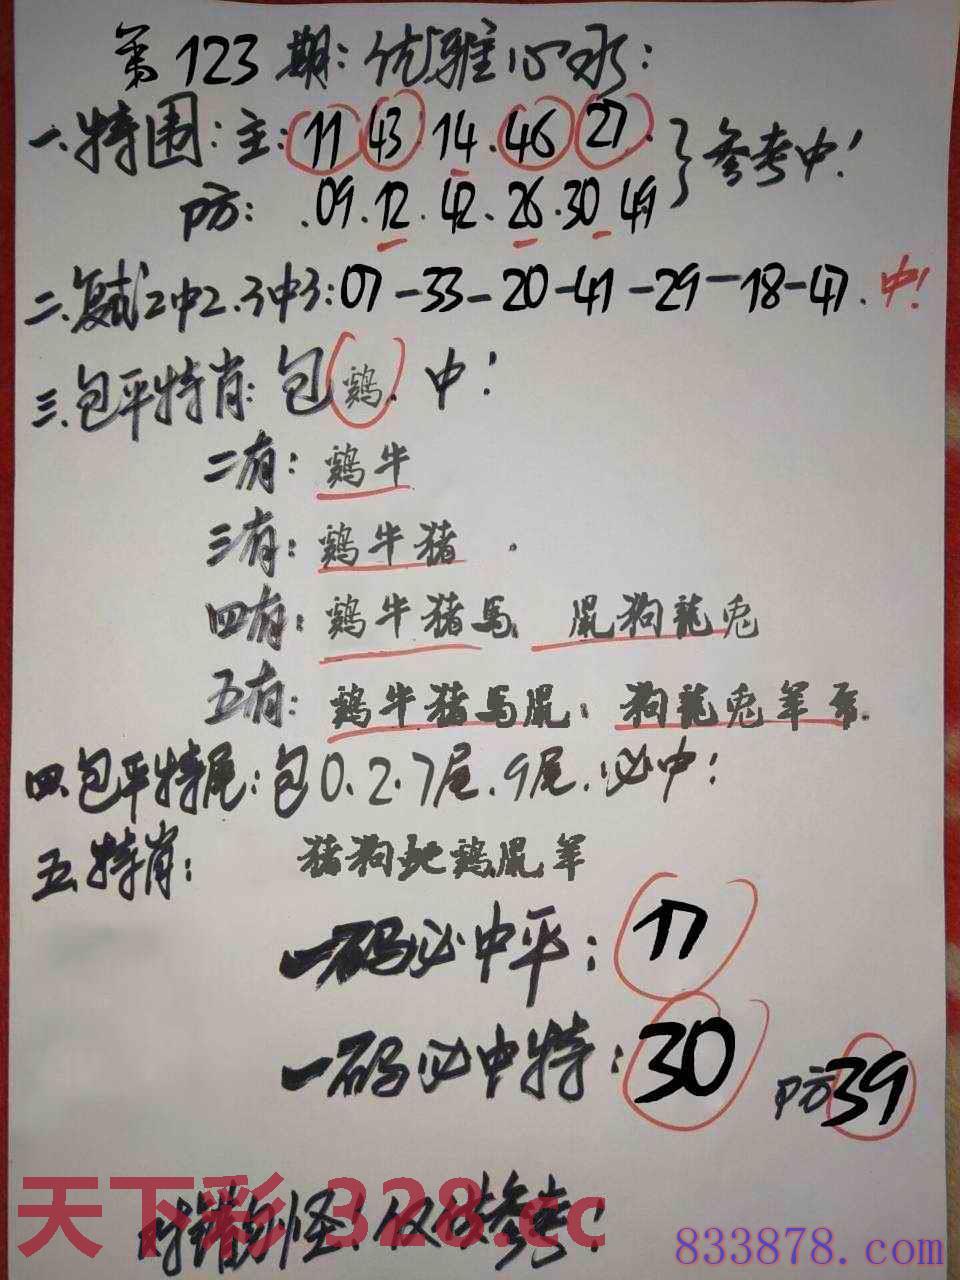 第123期:优雅心水:
一.特围:主:11 43·14·46 27. }参考中!
防: .09.12.42.26.30 49
二.复试2中2.3中3:07-33-20-41-29-18-47.中!
三.包平特肖:包鷄.中!
二有:鷄牛
三有:鷄牛猪.
四有:鷄牛猪馬 鼠狗龍兎
五有:鷄牛猪馬鼠:狗龍兎羊
四.包平特尾:包0.2.7尾.9尾.必中!
五.特肖: 猪狗蛇鷄鼠羊
一码必中平: 17
一码必中特:30 防39
错勿怪!仅供参考!
天下彩 328.cc
833878.com